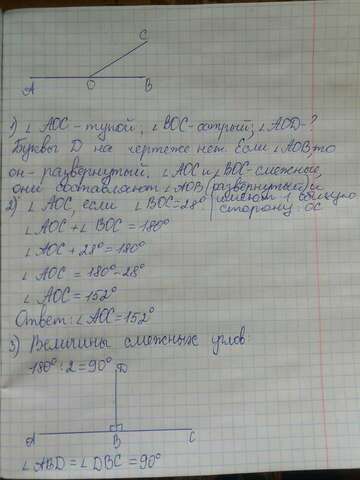 C
A O B
1) ∠ AOC - тупой, ∠ BOC - острый, ∠ AOD - ?
Буквы D на чертеже нет. Если ∠ AOB, то
он - развернутый. ∠ AOC и ∠ BOC - смежные,
они составляют ∠ AOB (развернутый) и
имеют 1 общую
сторону: OC
2) ∠ AOC, если ∠ BOC = 28°
∠ AOC + ∠ BOC = 180°
∠ AOC + 28° = 180°
∠ AOC = 180° - 28°
∠ AOC = 152°
Ответ: ∠ AOC = 152°
3) Величины смежных углов:
180° : 2 = 90°
D
A B C
∠ ABD = ∠ DBC = 90°